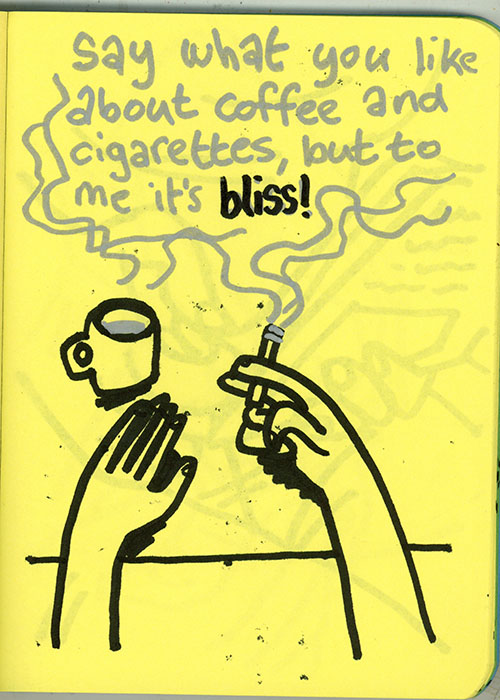 say what you like
about coffee and
cigarettes, but to
me it's bliss!